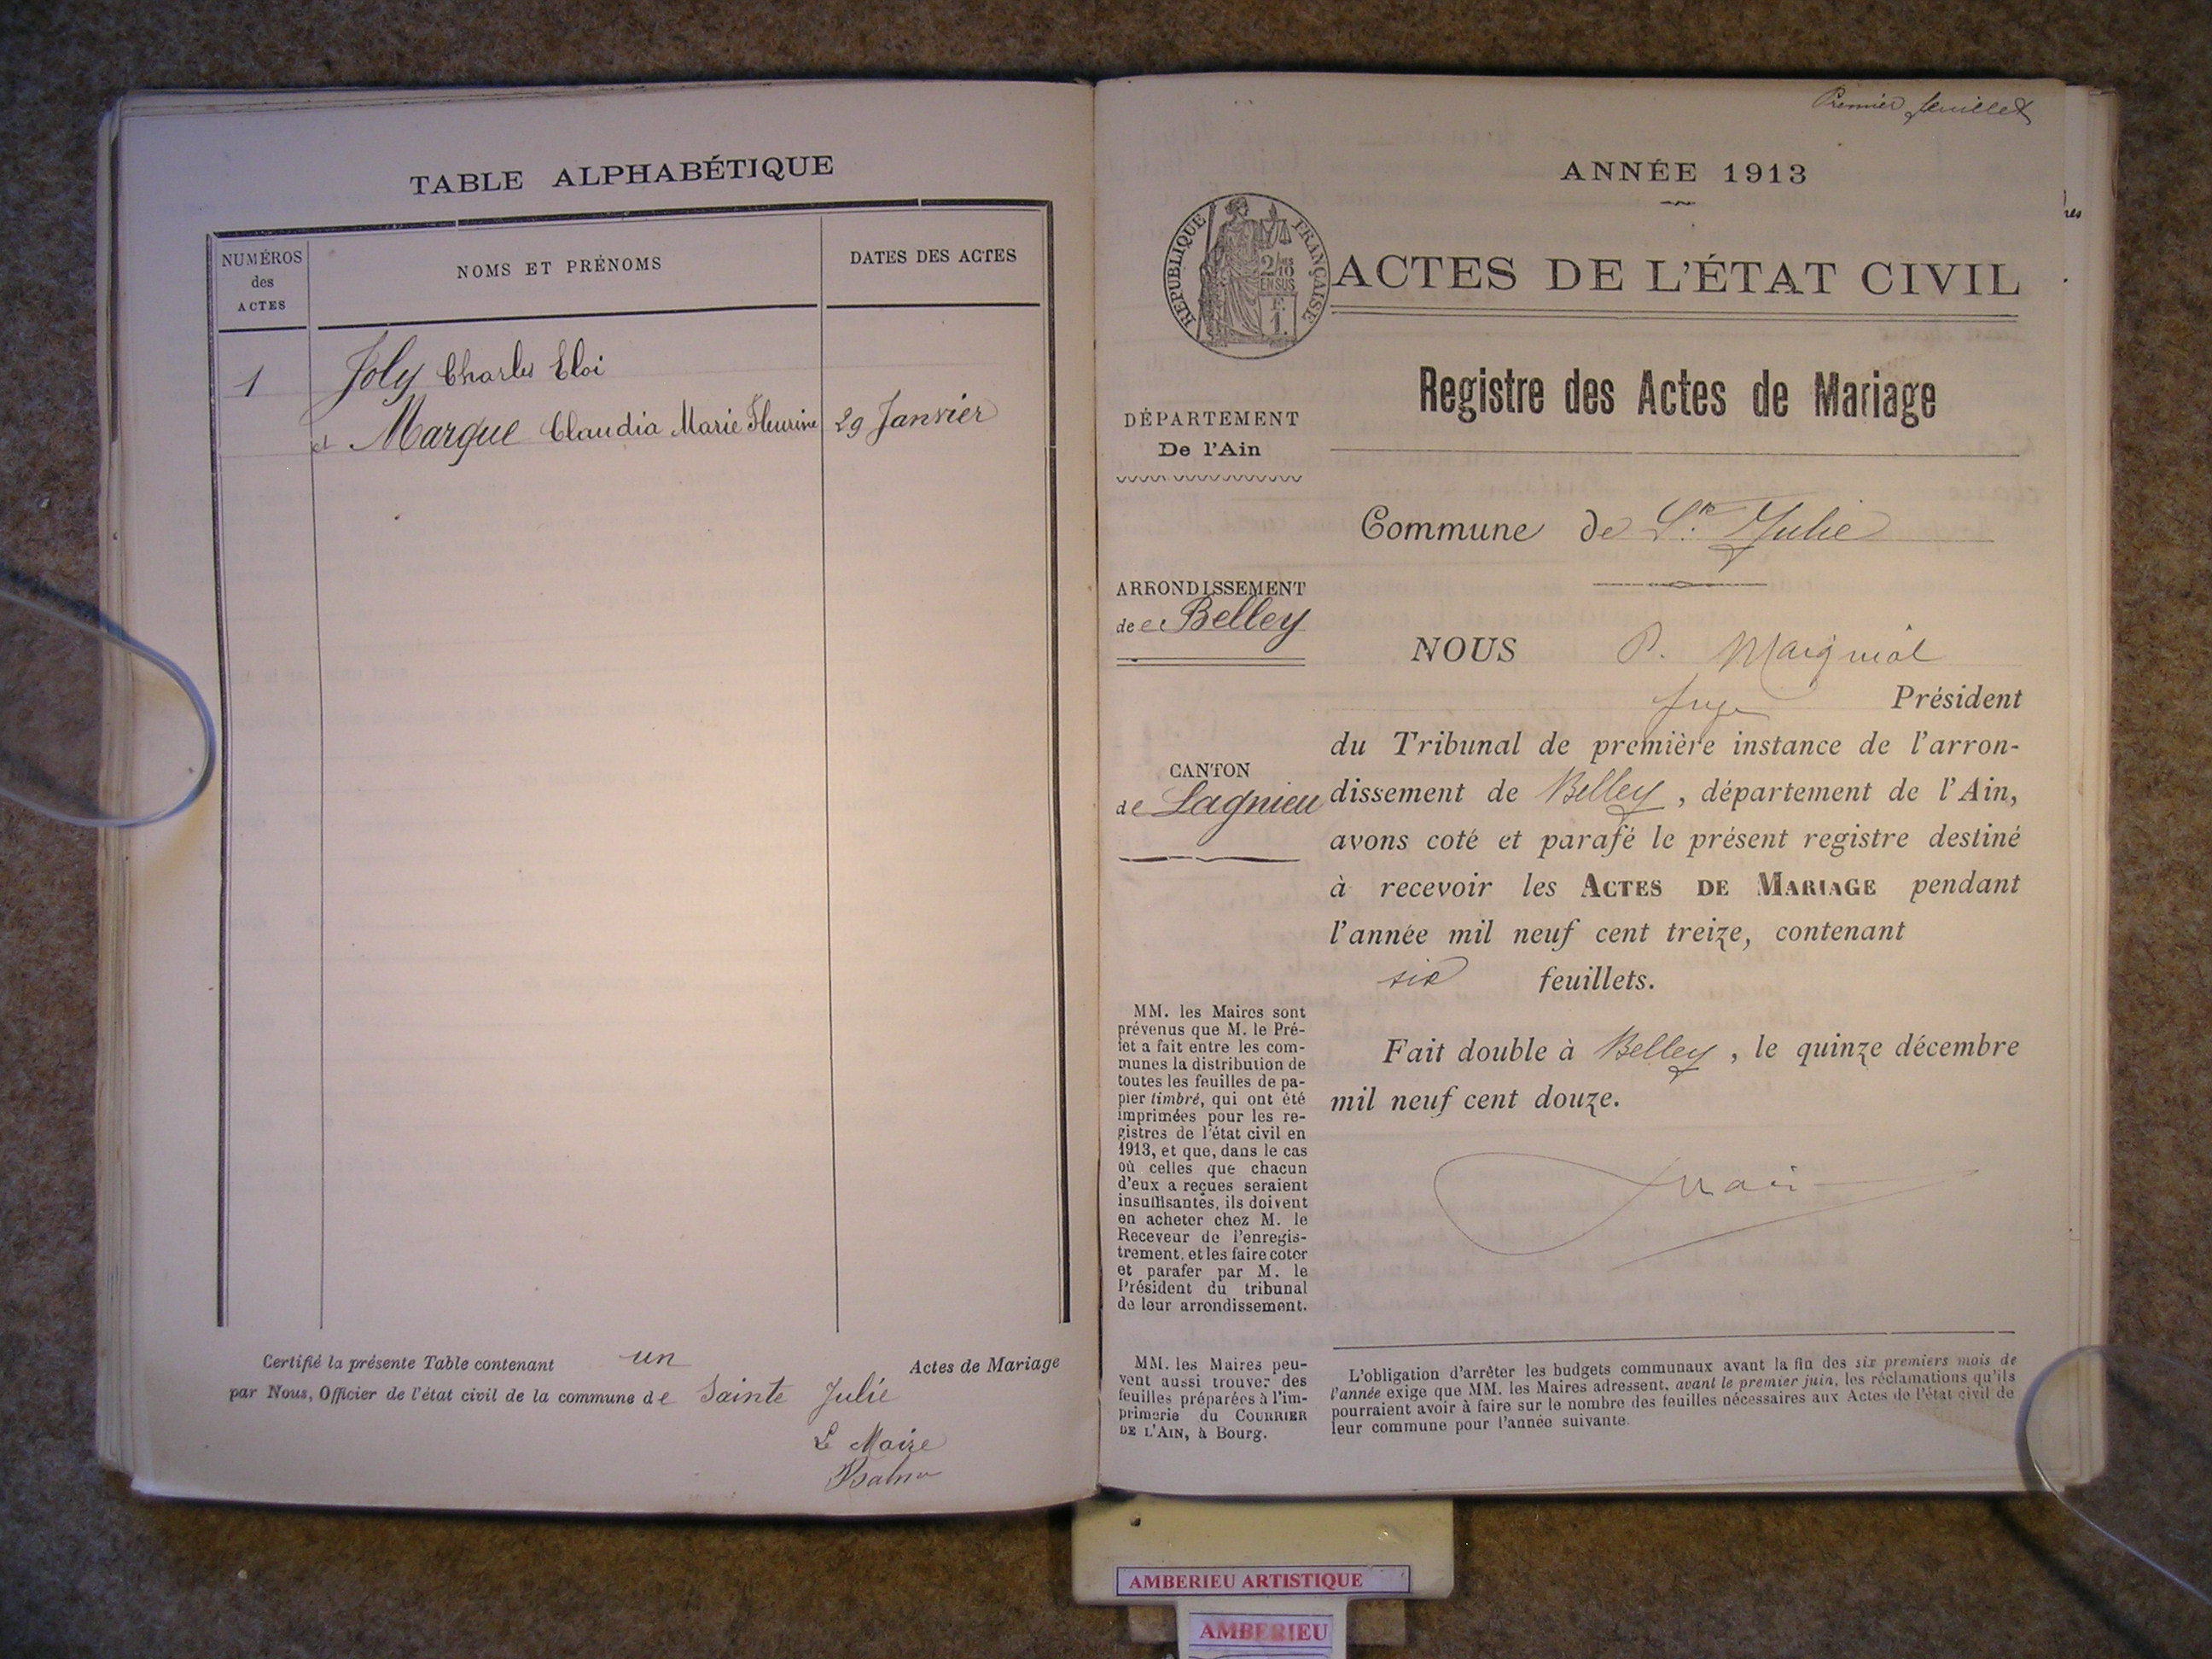 TABLE ALPHABÉTIQUE
NUMÉROS
des
ACTES
NOMS ET PRÉNOMS
DATES DES ACTES
1
Joly Charles Eloi
et Margue Claudia Marie Fleurine
29 Janvier
Certifié la présente Table contenant un Actes de Mariage
par Nous, Officier de l'état civil de la commune de Sainte Julie
Le Maire
Premier feuillet
ANNÉE 1913
RÉPUBLIQUE FRANÇAISE
2/10
EN SUS
F.
1.
ACTES DE L'ÉTAT CIVIL
Registre des Actes de Mariage
DÉPARTEMENT
De l'Ain
Commune de Ste Julie
ARRONDISSEMENT
de Belley
NOUS P. Maigniol
Juge Président
du Tribunal de première instance de l'arron-
dissement de Belley, département de l'Ain,
avons coté et parafé le présent registre destiné
à recevoir les ACTES DE MARIAGE pendant
l'année mil neuf cent treize, contenant
six feuillets.
Fait double à Belley, le quinze décembre
mil neuf cent douze.
CANTON
de Lagnieu
MM. les Maires sont
prévenus que M. le Pré-
fet a fait entre les com-
munes la distribution de
toutes les feuilles de pa-
pier timbré, qui ont été
imprimées pour les re-
gistres de l'état civil en
1913, et que, dans le cas
où celles que chacun
d'eux a reçues seraient
insuffisantes, ils doivent
en acheter chez M. le
Receveur de l'enregis-
trement, et les faire coter
et parafer par M. le
Président du tribunal
de leur arrondissement.
MM. les Maires peu-
vent aussi trouver des
feuilles préparées à l'im-
primerie du COURRIER
DE L'AIN, à Bourg.
L'obligation d'arrêter les budgets communaux avant la fin des six premiers mois de
l'année exige que MM. les Maires adressent, avant le premier juin, les réclamations qu'ils
pourraient avoir à faire sur le nombre des feuilles nécessaires aux Actes de l'état civil de
leur commune pour l'année suivante.
AMBERIEU ARTISTIQUE
AMBERIEU